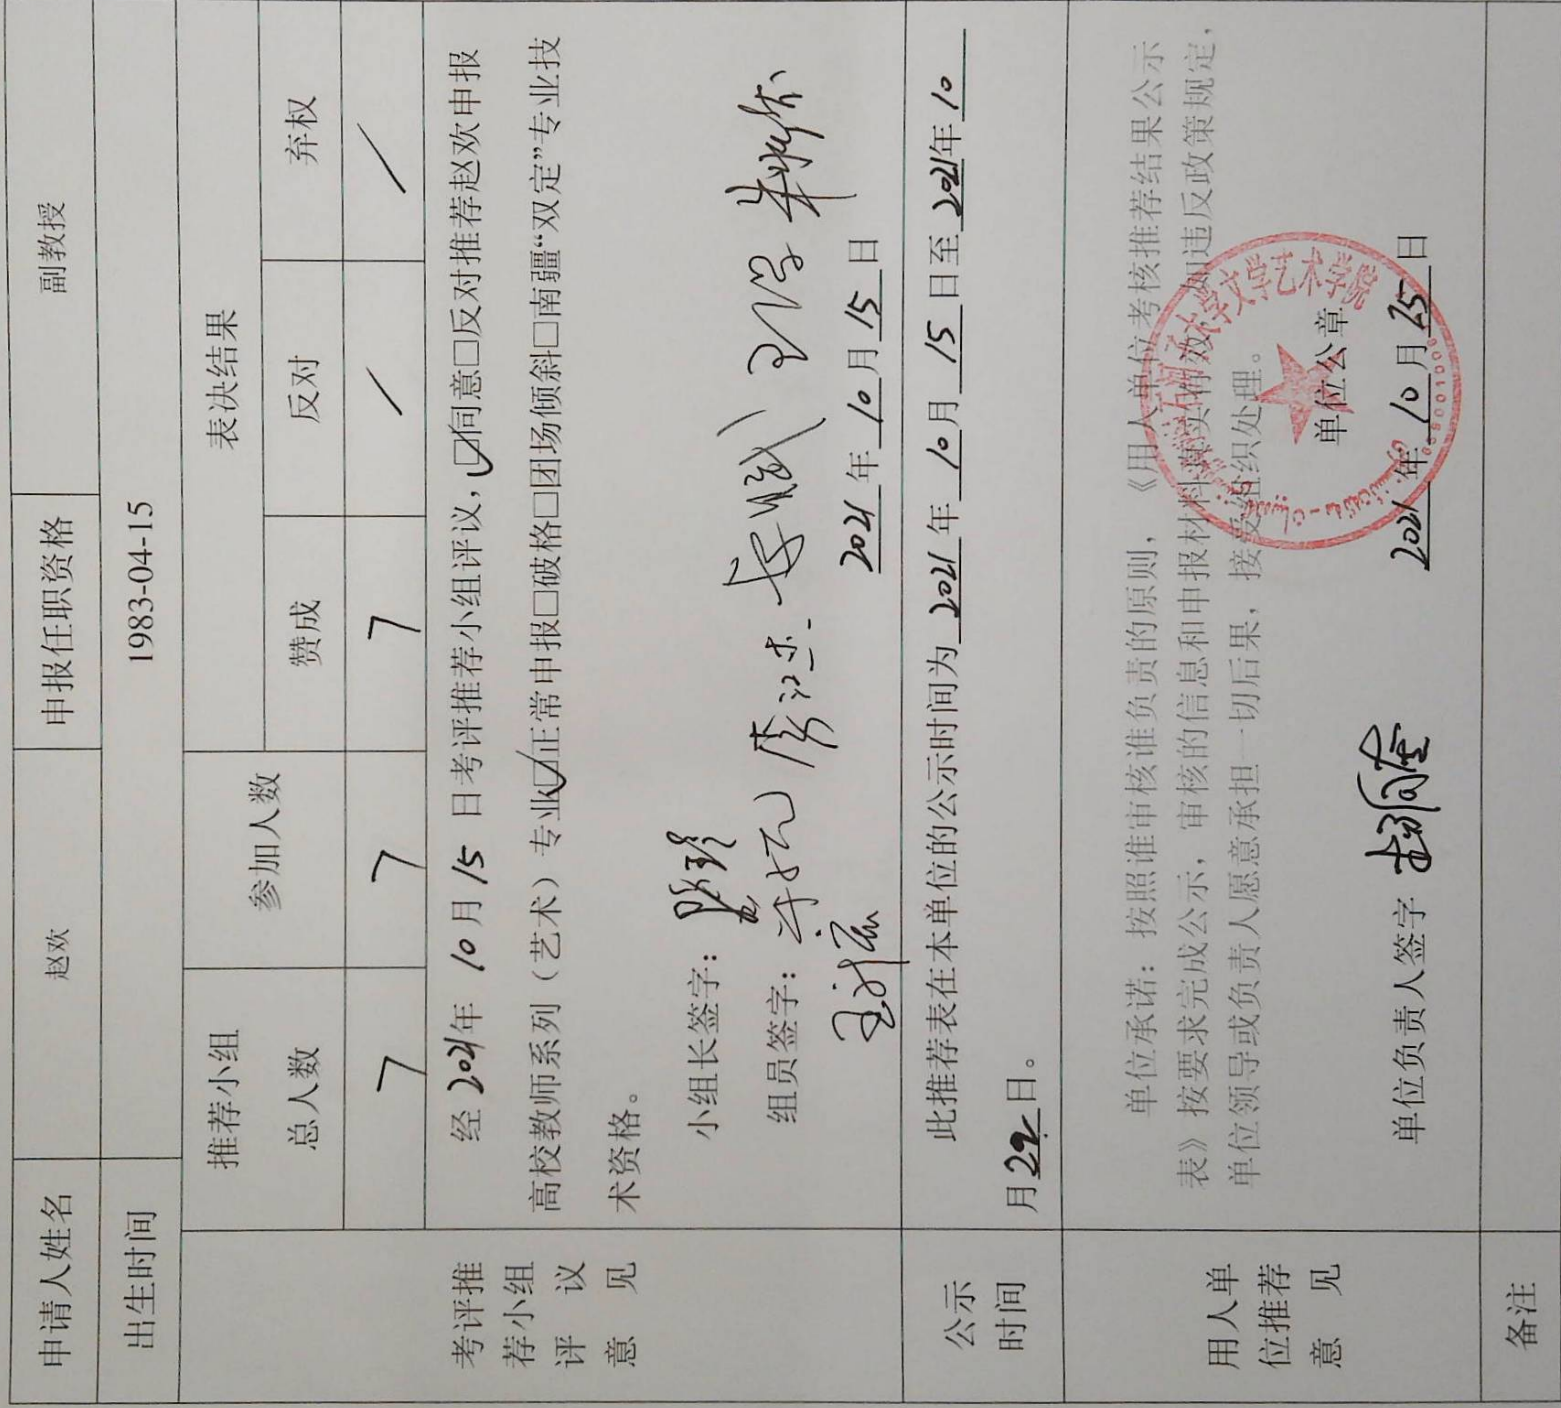 申请人姓名 赵欢 申报任职资格 副教授
出生时间 1983-04-15
考评推荐小组评议意见
推荐小组总人数 参加人数 表决结果
赞成 反对 弃权
7 7 7 / /
经2021年10月15日考评推荐小组评议,☑同意□反对推荐赵欢申报
高校教师系列（艺术）专业☑正常申报□破格□团场倾斜□南疆“双定”专业技
术资格。
小组长签字：
组员签字：
2021年10月15日
公示时间
此推荐表在本单位的公示时间为2021年10月15日至2021年10
月22日。
用人单位推荐意见
单位承诺：按照谁审核谁负责的原则，《用人单位考核推荐结果公示
表》按要求完成公示，审核的信息和申报材料真实有效，如违反政策规定，
单位领导或负责人愿意承担一切后果，接受组织处理。
大学文学艺术学院
单位公章
单位负责人签字
2021年10月25日
备注